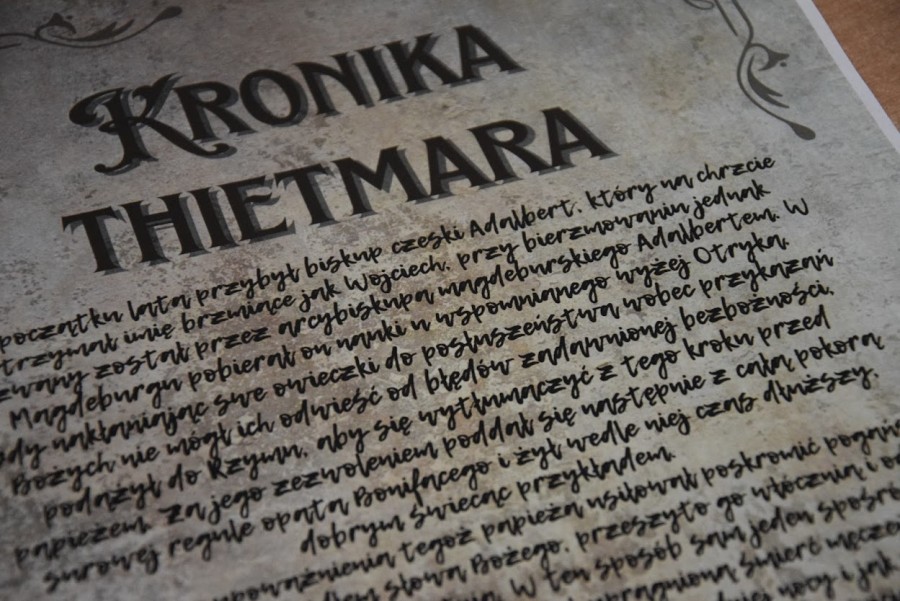 KRONIKA
THIETMARA
początku lata przybył biskup czeski Adalbert, który na chrzcie
trzymał imię brzmiące jak Wojciech, przy bierzmowaniu jednak
zwany został przez arcybiskupa magdeburskiego Adalbertem. W
Magdeburgu pobierał on nauki u wspomnianego wyżej Otryka.
dy nakłaniając swe owieczki do posłuszeństwa wobec przykazań
Bożych nie mógł ich odwieść od błędów zadawnionej bezbożności,
podążył do Rzymu, aby się wytłumaczyć z tego kroku przed
papieżem. Za jego zezwoleniem poddał się następnie z całą pokorą
surowej regule opata Bonifacego i żył wedle niej czas dłuższy,
dobrym świecąc przykładem.
upoważnienia tegoż papieża usiłował poskromić
słowa Bożego, przeszyto go włócznią i
W ten sposób sam jeden
śmierć
nocy i jak